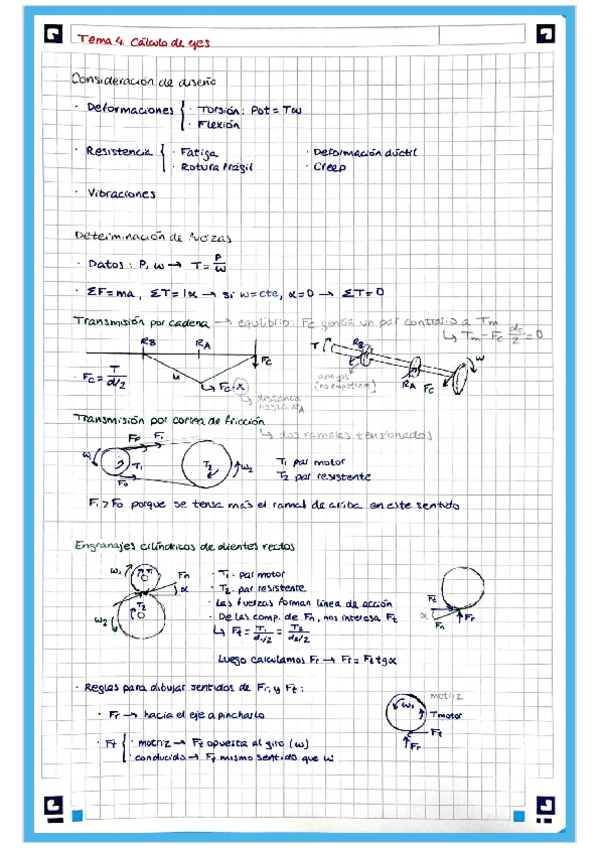 Tema 4. Cálculo de ejes
Consideración de diseño
· Deformaciones { · Torsión: Pot = Tω
· Flexión
· Resistencia { · Fatiga · Deformación dúctil
· Rotura frágil · Creep
· Vibraciones
Determinación de fuerzas
· Datos: P, ω → T = P/ω
· ΣF = ma, ΣT = Iα → si ω = cte, α = 0 → ΣT = 0
Transmisión por cadena → equilibrio: Fc genera un par contrario a Tm
↳ Tm - Fc dc/2 = 0
RB RA Fc
T RB ω
· Fc = T/d/2
M
↳ Fc · x
↳ distancia hasta RA
apoyos
RA Fc
Transmisión por correa de fricción
↳ dos ramales tensionados
F1 F1
ω1 T1 T2 ω2
F0
T1 par motor
T2 par resistente
F1 > F0 porque se tensa más el ramal de arriba en este sentido
Engranajes cilíndricos de dientes rectos
ω1 T1 Fn α
T2
ω2
· T1: par motor
· T2: par resistente
· Las fuerzas forman línea de acción
· De las comp. de Fn, nos interesa Ft
↳ Ft = T1/d1/2 = T2/d2/2
Luego calculamos Fr → Fr = Ft tgα
Ft
α
Fn Fr
· Reglas para dibujar sentidos de Fr, y Ft:
· Fr → hacia el eje a pincharlo
· Ft { · motriz → Ft opuesta al giro (ω)
· conducido → Ft mismo sentido que ω
motriz
ω1 Tmotor
Ft
Fr